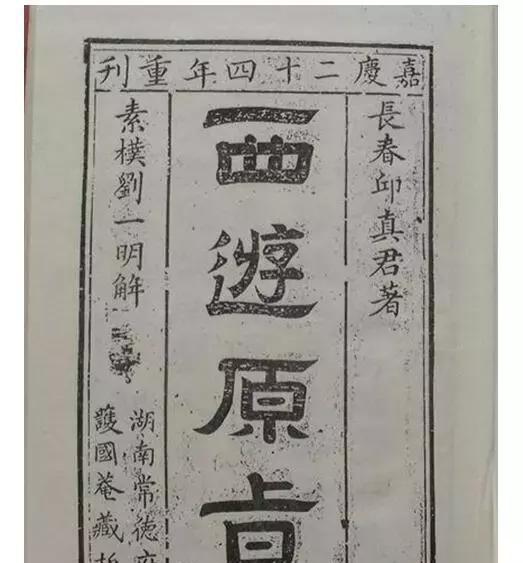 嘉慶二十四年重刊
長春邱真君著
西遊原旨
素樸劉一明解
湖南常徳府
護國菴藏